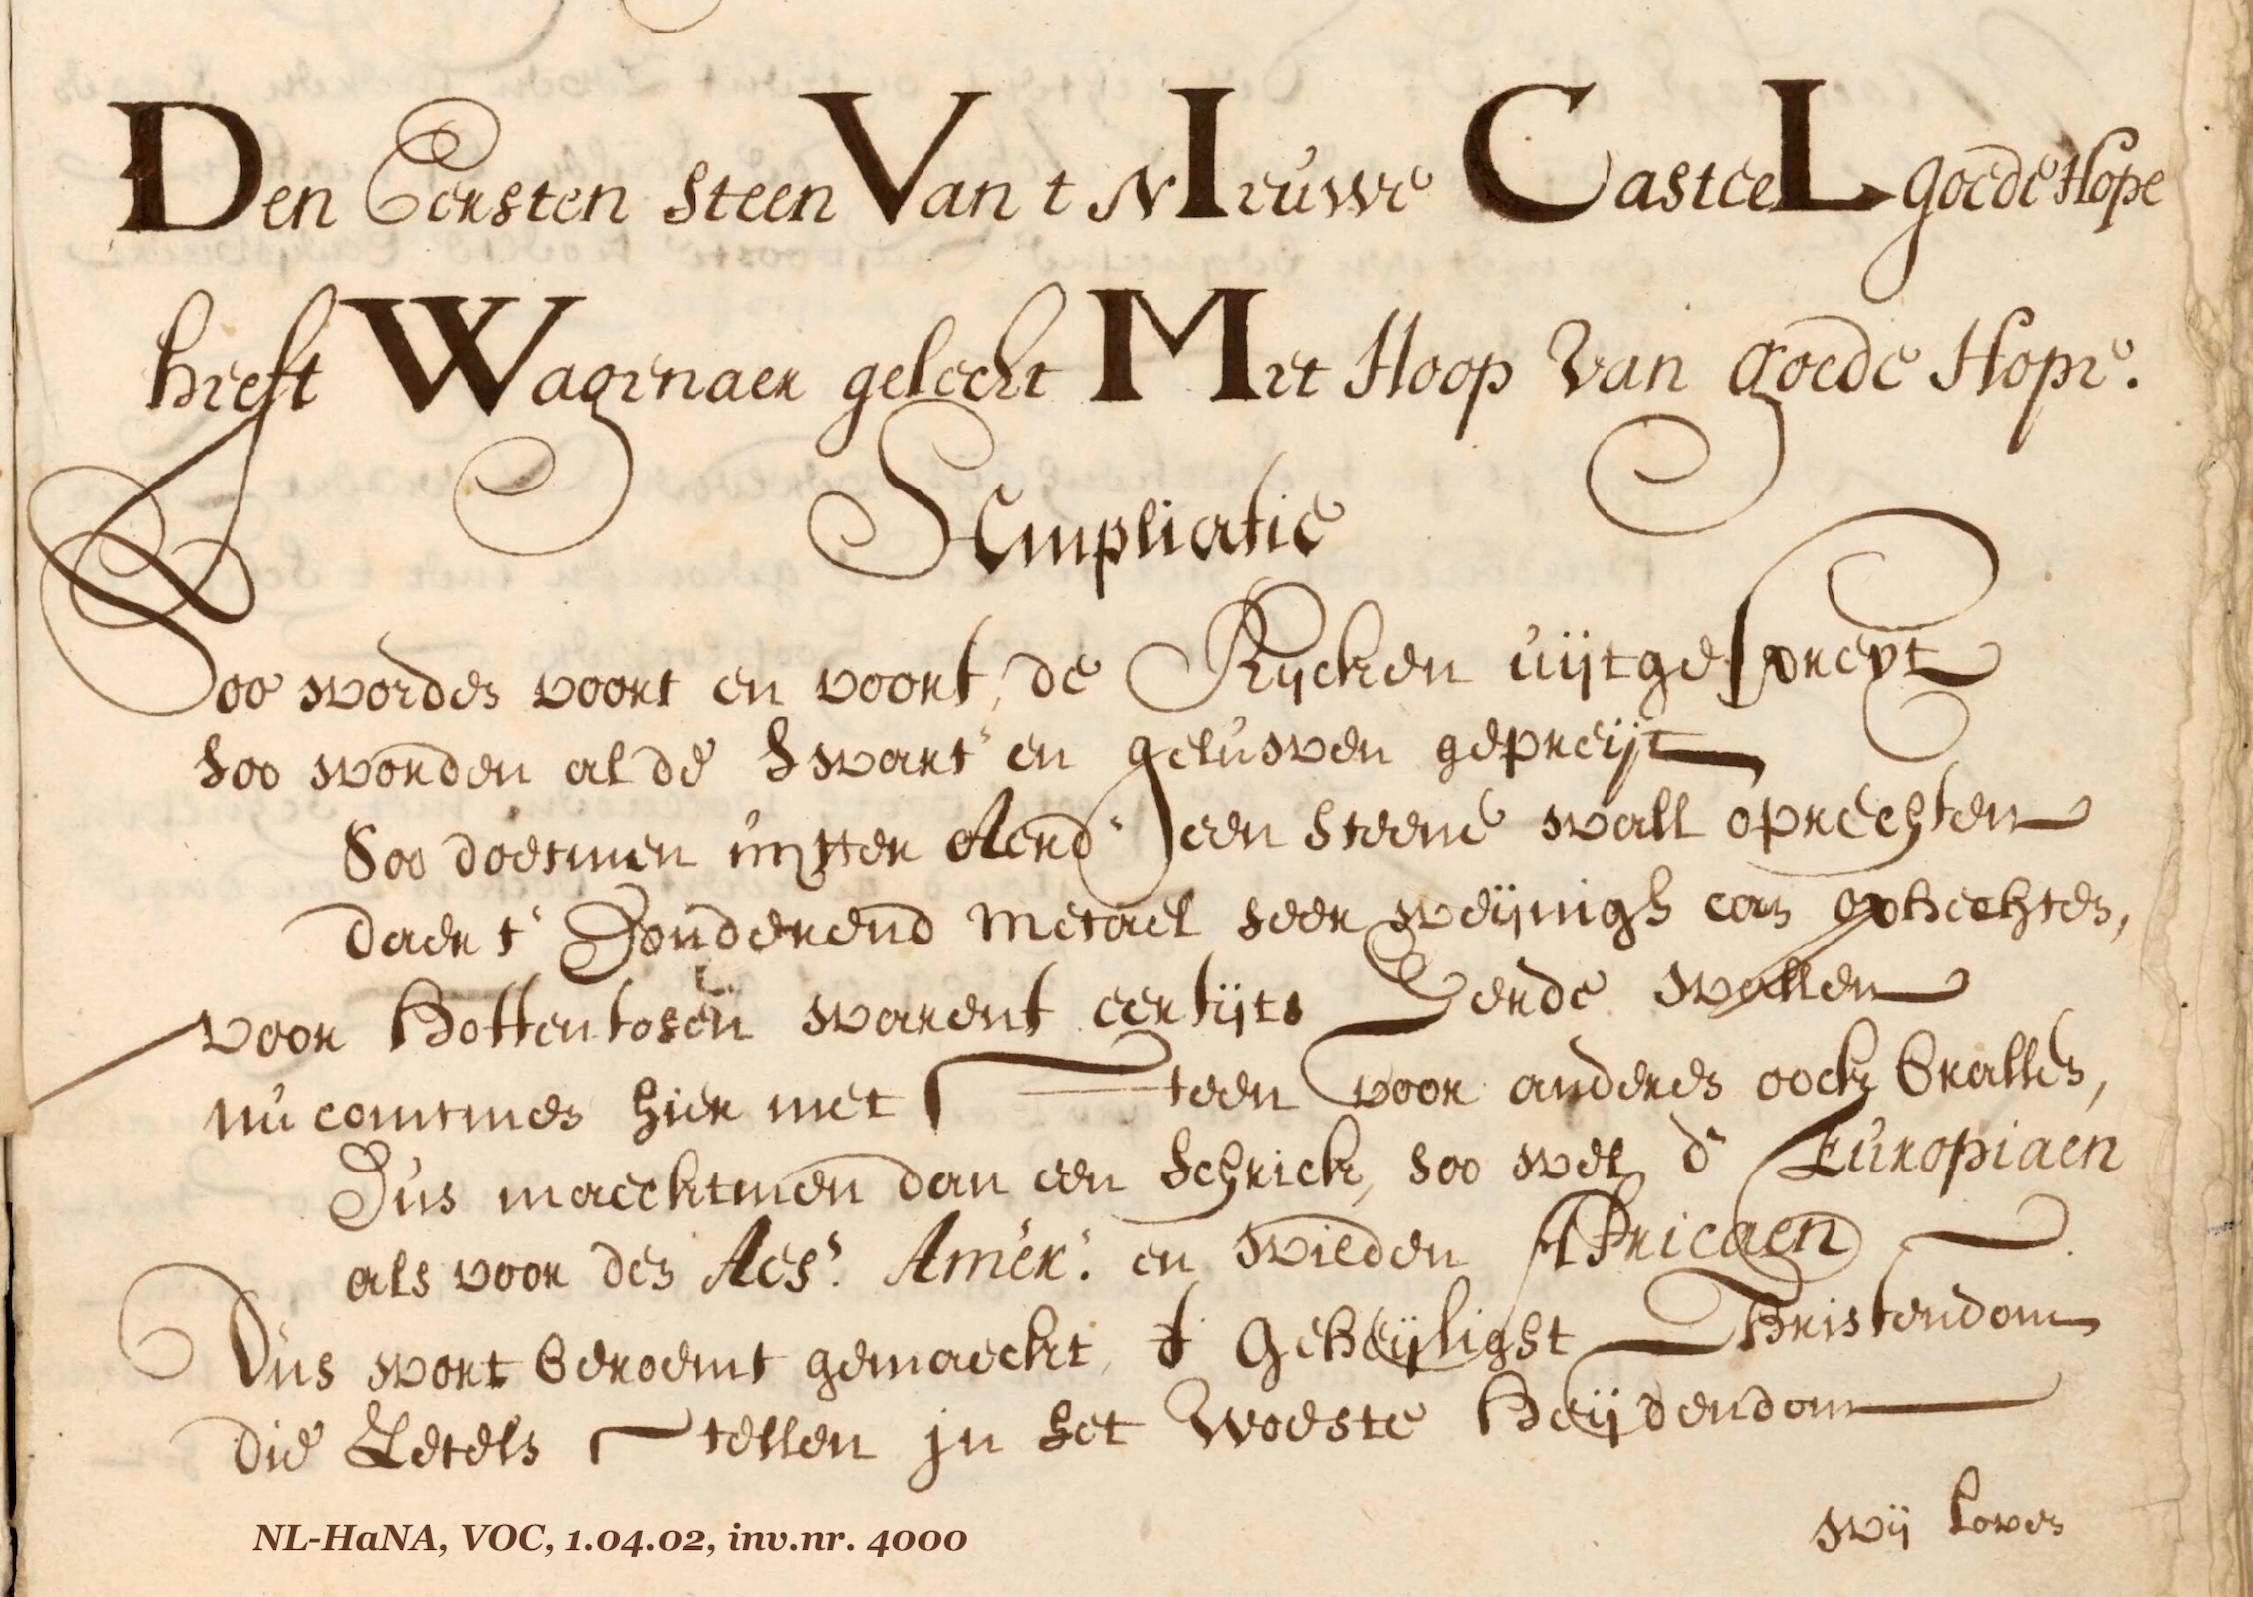 Den Eersten steen Van t NIeuwe CasteeL goede Hope
heeft Wagenaer gelecht Met Hoop Van goede Hope.
Ampliatie
Soo worden voort en voort, de Rijcken uijtgespreyt
soo worden al de swart' en geluwen gepreijt
Soo doetmen uijtter Aerd' een steene wall oprechten
daer t' Donderend metael seer weijnigh can ophechten,
voor Hottentosen warent eertijts Eerde wallen
nu comtmen hier met Steen voor anderen oock brallen,
Dus maecktmen dan een schrick, soo wel d' Europiaen
als voor den Aes: Amer: en wilden Africaen
Dus wort beroemt gemaeckt, t Geheijlight Christendom
die Zetels Stellen in het Woeste Heijdendom
wij loven
NL-HaNA, VOC, 1.04.02, inv.nr. 4000